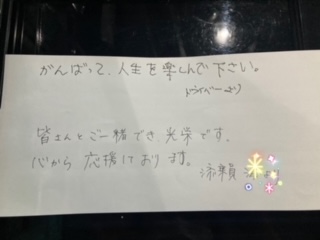 がんばって、人生を楽しんで下さい。
ドライバーより
皆さんとご一緒でき光栄です。
心から応援しております。